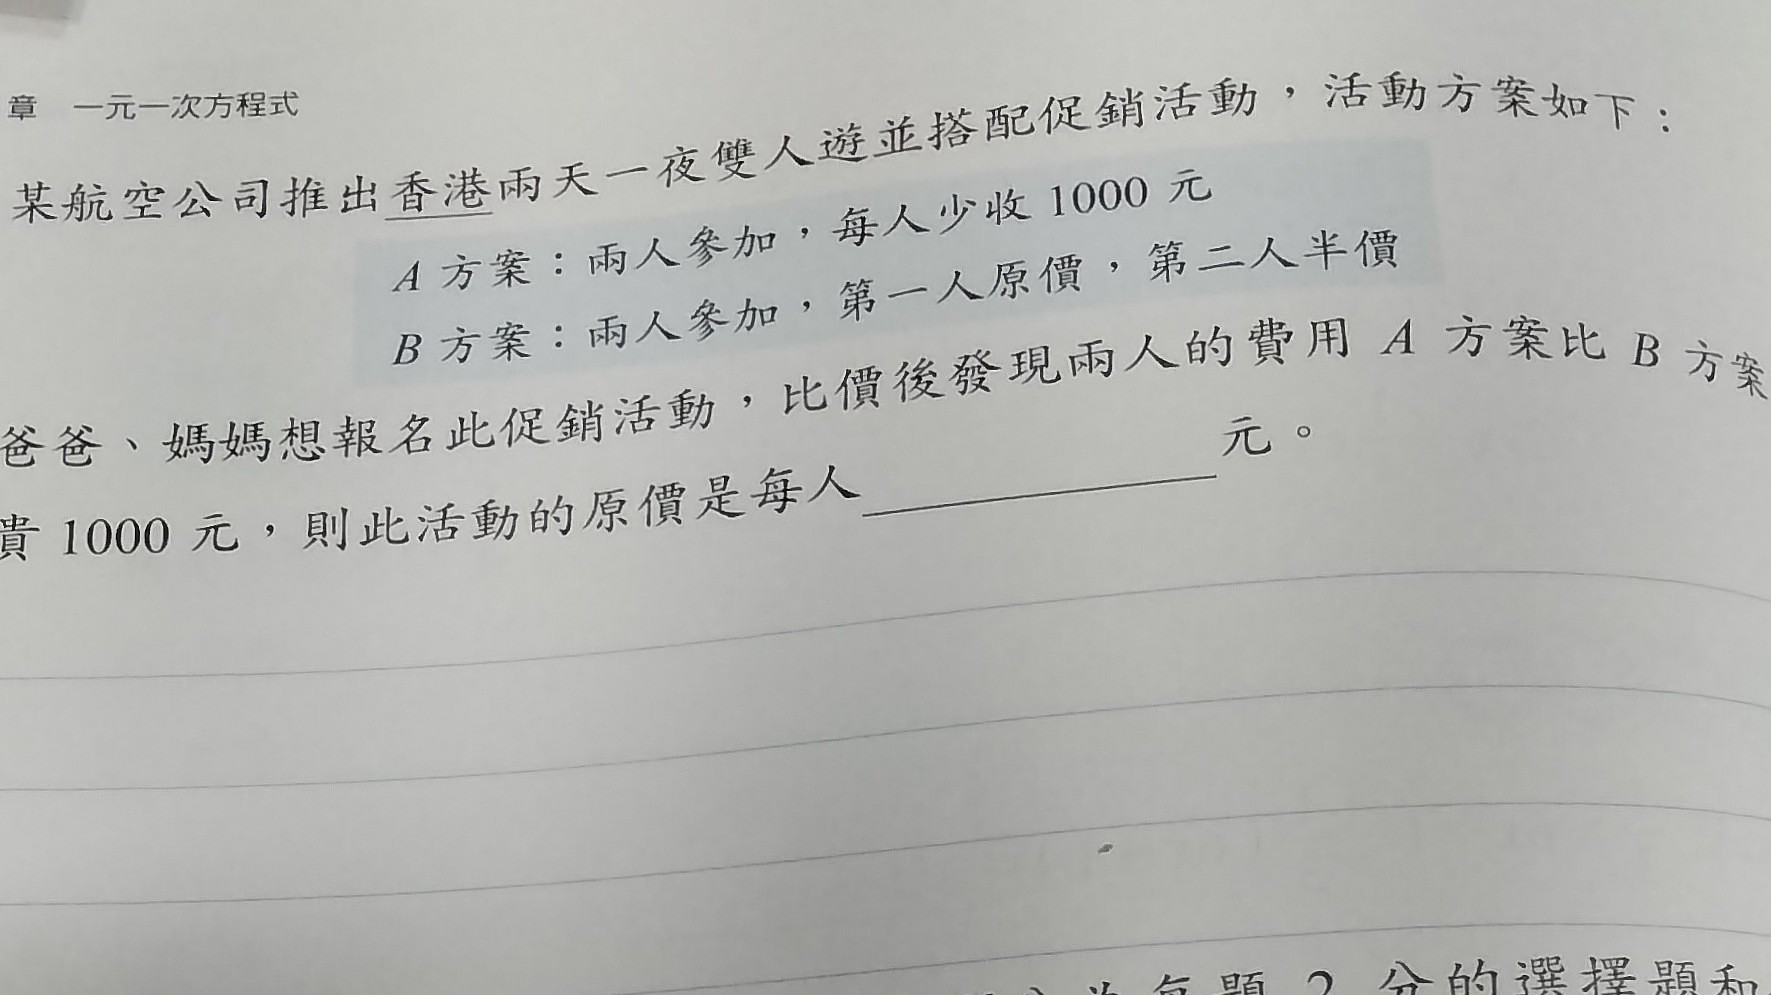 章 一元一次方程式
某航空公司推出香港兩天一夜雙人遊並搭配促銷活動，活動方案如下：
A 方案：兩人參加，每人少收 1000 元
B 方案：兩人參加，第一人原價，第二人半價
爸爸、媽媽想報名此促銷活動，比價後發現兩人的費用 A 方案比 B 方案
貴 1000 元，則此活動的原價是每人 元。
每題 2 分的選擇題和